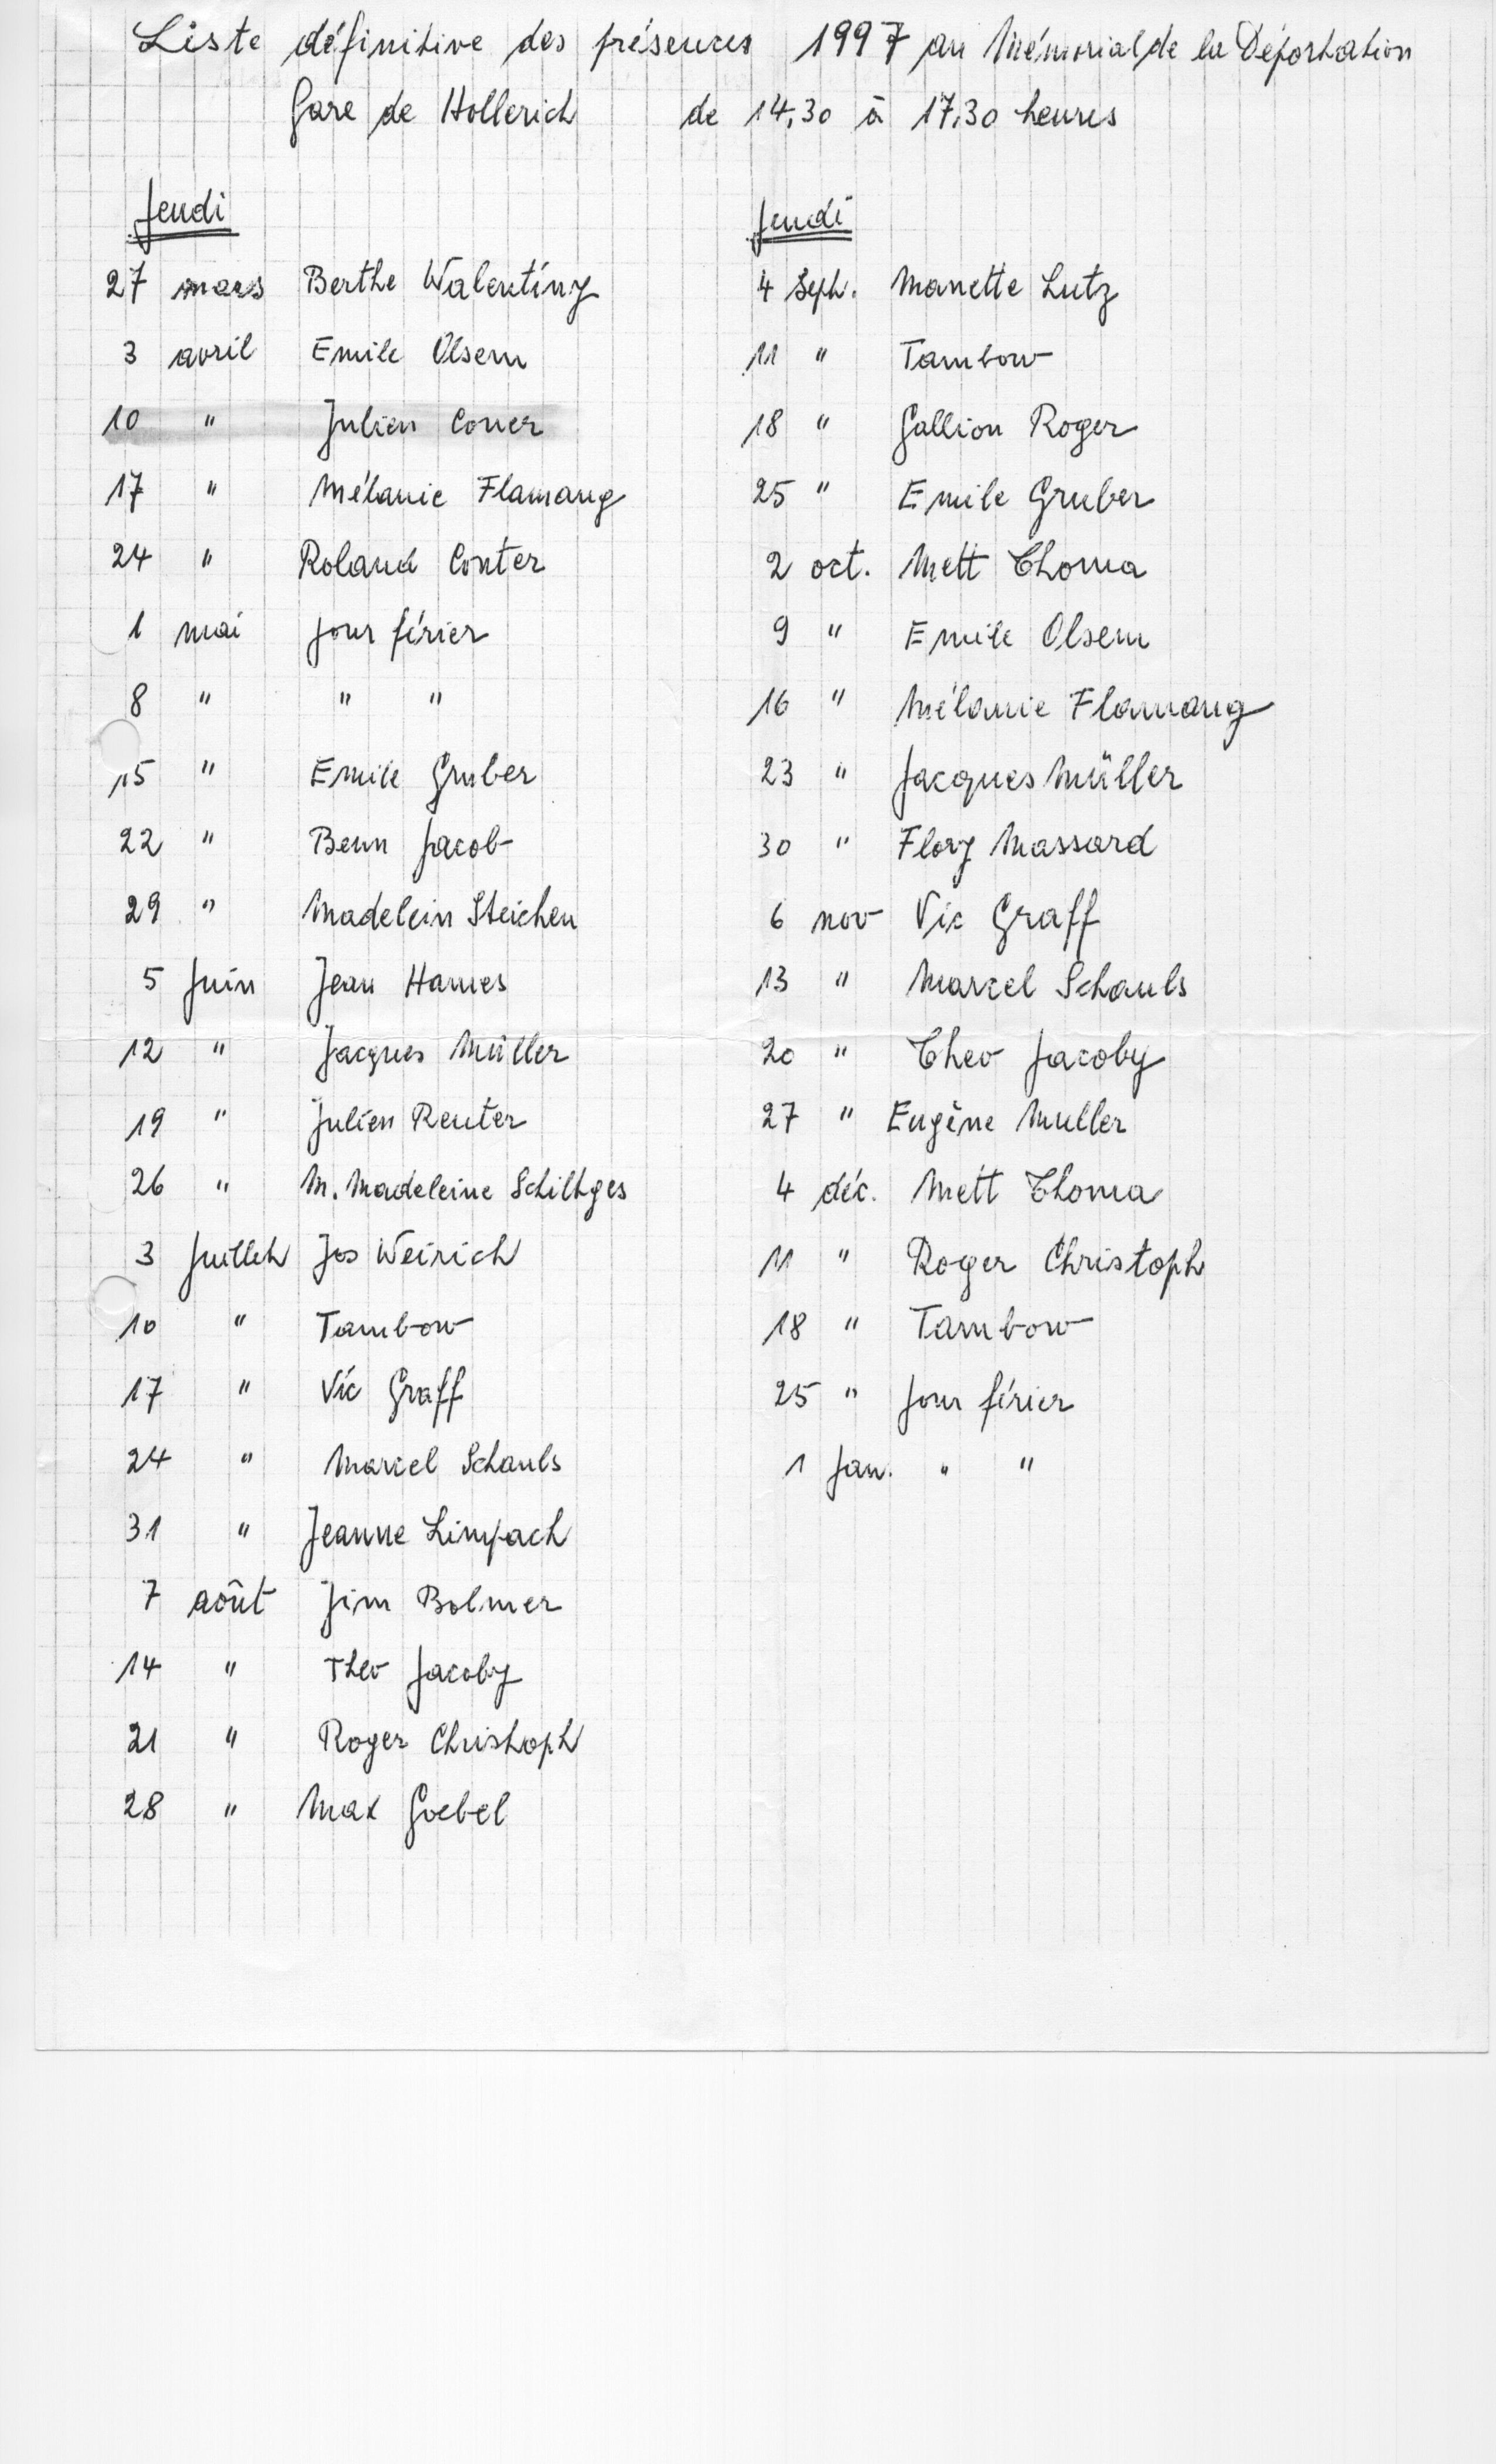 Liste définitive des présences 1997 au Mémorial de la Déportation
Gare de Hollerich de 14,30 à 17.30 heures
Jeudi
27 mars Berthe Walentiny
3 avril Emile Olsem
10 " Julien Coner
17 " Mélanie Flamang
24 " Roland Conter
1 mai jour férier
8 " " "
15 " Emile Gruber
22 " Benn Jacob
29 " Madelein Steichen
5 Juin Jean Hames
12 " Jacques Müller
19 " Julien Reuter
26 " M. Madeleine Schiltges
3 Juillet Jos Weirich
10 " Tambow
17 " Vic Graff
24 " Marcel Schauls
31 " Jeanne Limpach
7 août Jim Bolmer
14 " Theo Jacoby
21 " Roger Christoph
28 " Max Goebel
Jeudi
4 Sept. Manette Lutz
11 " Tambow
18 " Gallion Roger
25 " Emile Gruber
2 oct. Mett Thoma
9 " Emile Olsem
16 " Mélanie Flamang
23 " Jacques Müller
30 " Flory Massard
6 nov Vic Graff
13 " Marcel Schauls
20 " Theo Jacoby
27 " Eugène Muller
4 déc. Mett Thoma
11 " Roger Christoph
18 " Tambow
25 " Jour férier
1 Jan. " "